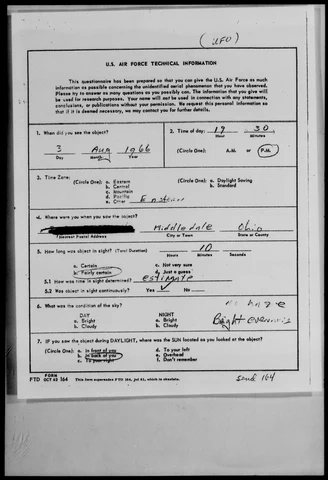 (UFO)
U. S. AIR FORCE TECHNICAL INFORMATION
This questionnaire has been prepared so that you can give the U. S. Air Force as much
information as possible concerning the unidentified aerial phenomenon that you have observed.
Please try to answer as many questions as you possibly can. The information that you give will
be used for research purposes. Your name will not be used in connection with any statements,
conclusions, or publications without your permission. We request this personal information so
that if it is deemed necessary, we may contact you for further details.
1. When did you see the object?
3 Aug 1966
Day Month Year
2. Time of day: 19 30
Hour Minutes
(Circle One): A.M. or P.M.
3. Time Zone:
(Circle One): a. Eastern
b. Central
c. Mountain
d. Pacific
e. Other Eastern
(Circle One): a. Daylight Saving
b. Standard
4. Where were you when you saw the object?
Middledale Ohio
Nearest Postal Address City or Town State or County
5. How long was object in sight? (Total Duration) 10
Hours Minutes Seconds
a. Certain c. Not very sure
b. Fairly certain d. Just a guess
5.1 How was time in sight determined? estimate
5.2 Was object in sight continuously? Yes ✓ No
6. What was the condition of the sky?
DAY NIGHT
a. Bright a. Bright
b. Cloudy b. Cloudy
no haze
Bright evening
7. IF you saw the object during DAYLIGHT, where was the SUN located as you looked at the object?
(Circle One): a. In front of you d. To your left
b. In back of you e. Overhead
c. To your right f. Don't remember
FORM
FTD OCT 62 164 This form supersedes FTD 164, Jul 61, which is obsolete.
send 164